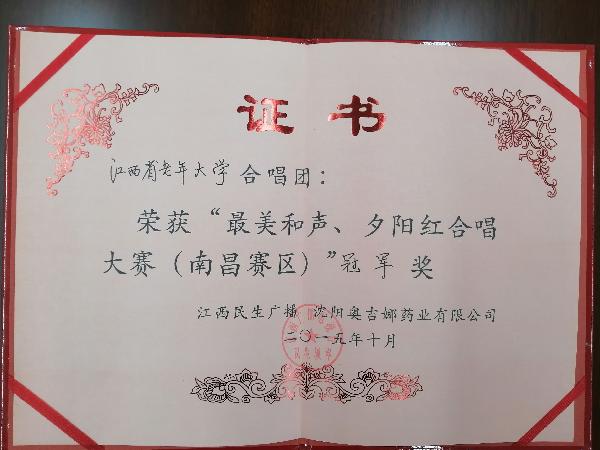 证书
江西省老年大学合唱团：
荣获“最美和声、夕阳红合唱
大赛（南昌赛区）”冠军奖
江西民生广播 沈阳奥吉娜药业有限公司
二〇一五年十月